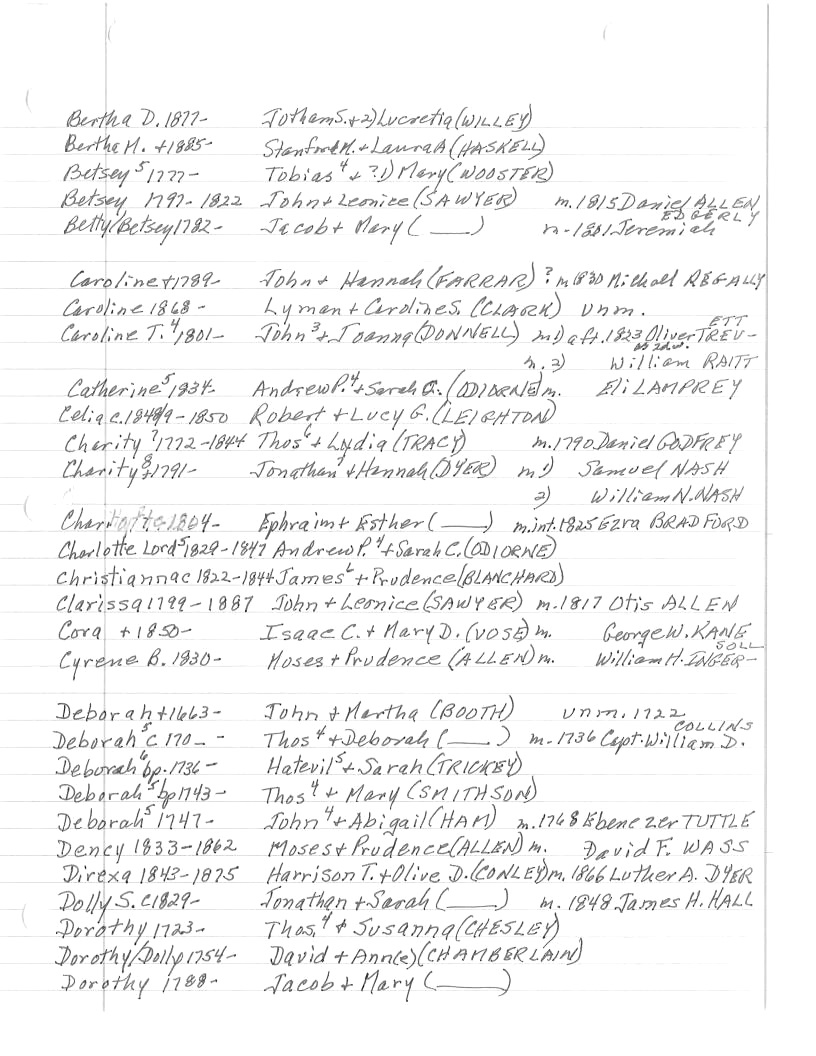 Bertha D. 1877- Jotham S. + 2) Lucretia (WILLEY)
Bertha M. ±1885- Stanford M. + Laura A (HASKELL)
Betsey⁵ 1777- Tobias⁴ + ?1) Mary (WOOSTER)
Betsey 1797-1822 John + Leonice (SAWYER) m. 1815 Daniel ALLEN
Betty/Betsey 1782- Jacob + Mary (___) m-1801 Jeremiah EDGERLY
Caroline ±1789- John + Hannah (FARRAR) ? m 1830 Michael REGALLY
Caroline 1868- Lyman + Caroline S. (CLARK) unm.
Caroline T.⁴ 1801- John³ + Joanna (DONNELL) m 1) aft. 1823 Oliver TREV-ETT
m. 2) as 2d w. William RAITT
Catherine⁵ 1834- Andrew P.⁴ + Sarah C. (ODIORNE) m. Eli LAMPREY
Celia c. 1848/9-1850 Robert + Lucy G. (LEIGHTON)
Charity ? 1772-1844 Thos⁶ + Lydia (TRACY) m. 1790 Daniel GODFREY
Charity⁸ ±1791- Jonathan⁷ + Hannah (DYER) m 1) Samuel NASH
2) William N. NASH
1804- Ephraim + Esther (___) m. int. 1825 Ezra BRADFORD
Charlotte Lord⁵ 1829-1847 Andrew P.⁴ + Sarah C. (ODIORNE)
Christianna c 1822-1844 James⁶ + Prudence (BLANCHARD)
Clarissa 1799-1887 John + Leonice (SAWYER) m. 1817 Otis ALLEN
Cora ±1850- Isaac C. + Mary D. (VOSE) m. George W. KANE
Cyrene B. 1830- Moses + Prudence (ALLEN) m. William H. INGER-SOLL
Deborah ±1663- John + Martha (BOOTH) unm. 1722
Deborah⁵ c 170_- Thos⁴ + Deborah (___) m. 1736 Capt. William D. COLLINS
Deborah⁶ bp. 1736- Hatevil⁵ + Sarah (TRICKEY)
Deborah⁵ bp 1743- Thos⁴ + Mary (SMITHSON)
Deborah⁵ 1747- John⁴ + Abigail (HAM) m. 1768 Ebenezer TUTTLE
Dency 1833-1862 Moses + Prudence (ALLEN) m. David F. WASS
Direxa 1843-1875 Harrison T. + Olive D. (CONLEY) m. 1866 Luther A. DYER
Dolly S. c 1829- Jonathan + Sarah (___) m. 1848 James H. HALL
Dorothy 1723- Thos.⁴ + Susanna (CHESLEY)
Dorothy/Dolly 1754- David + Ann(e) (CHAMBERLAIN)
Dorothy 1788- Jacob + Mary (___)